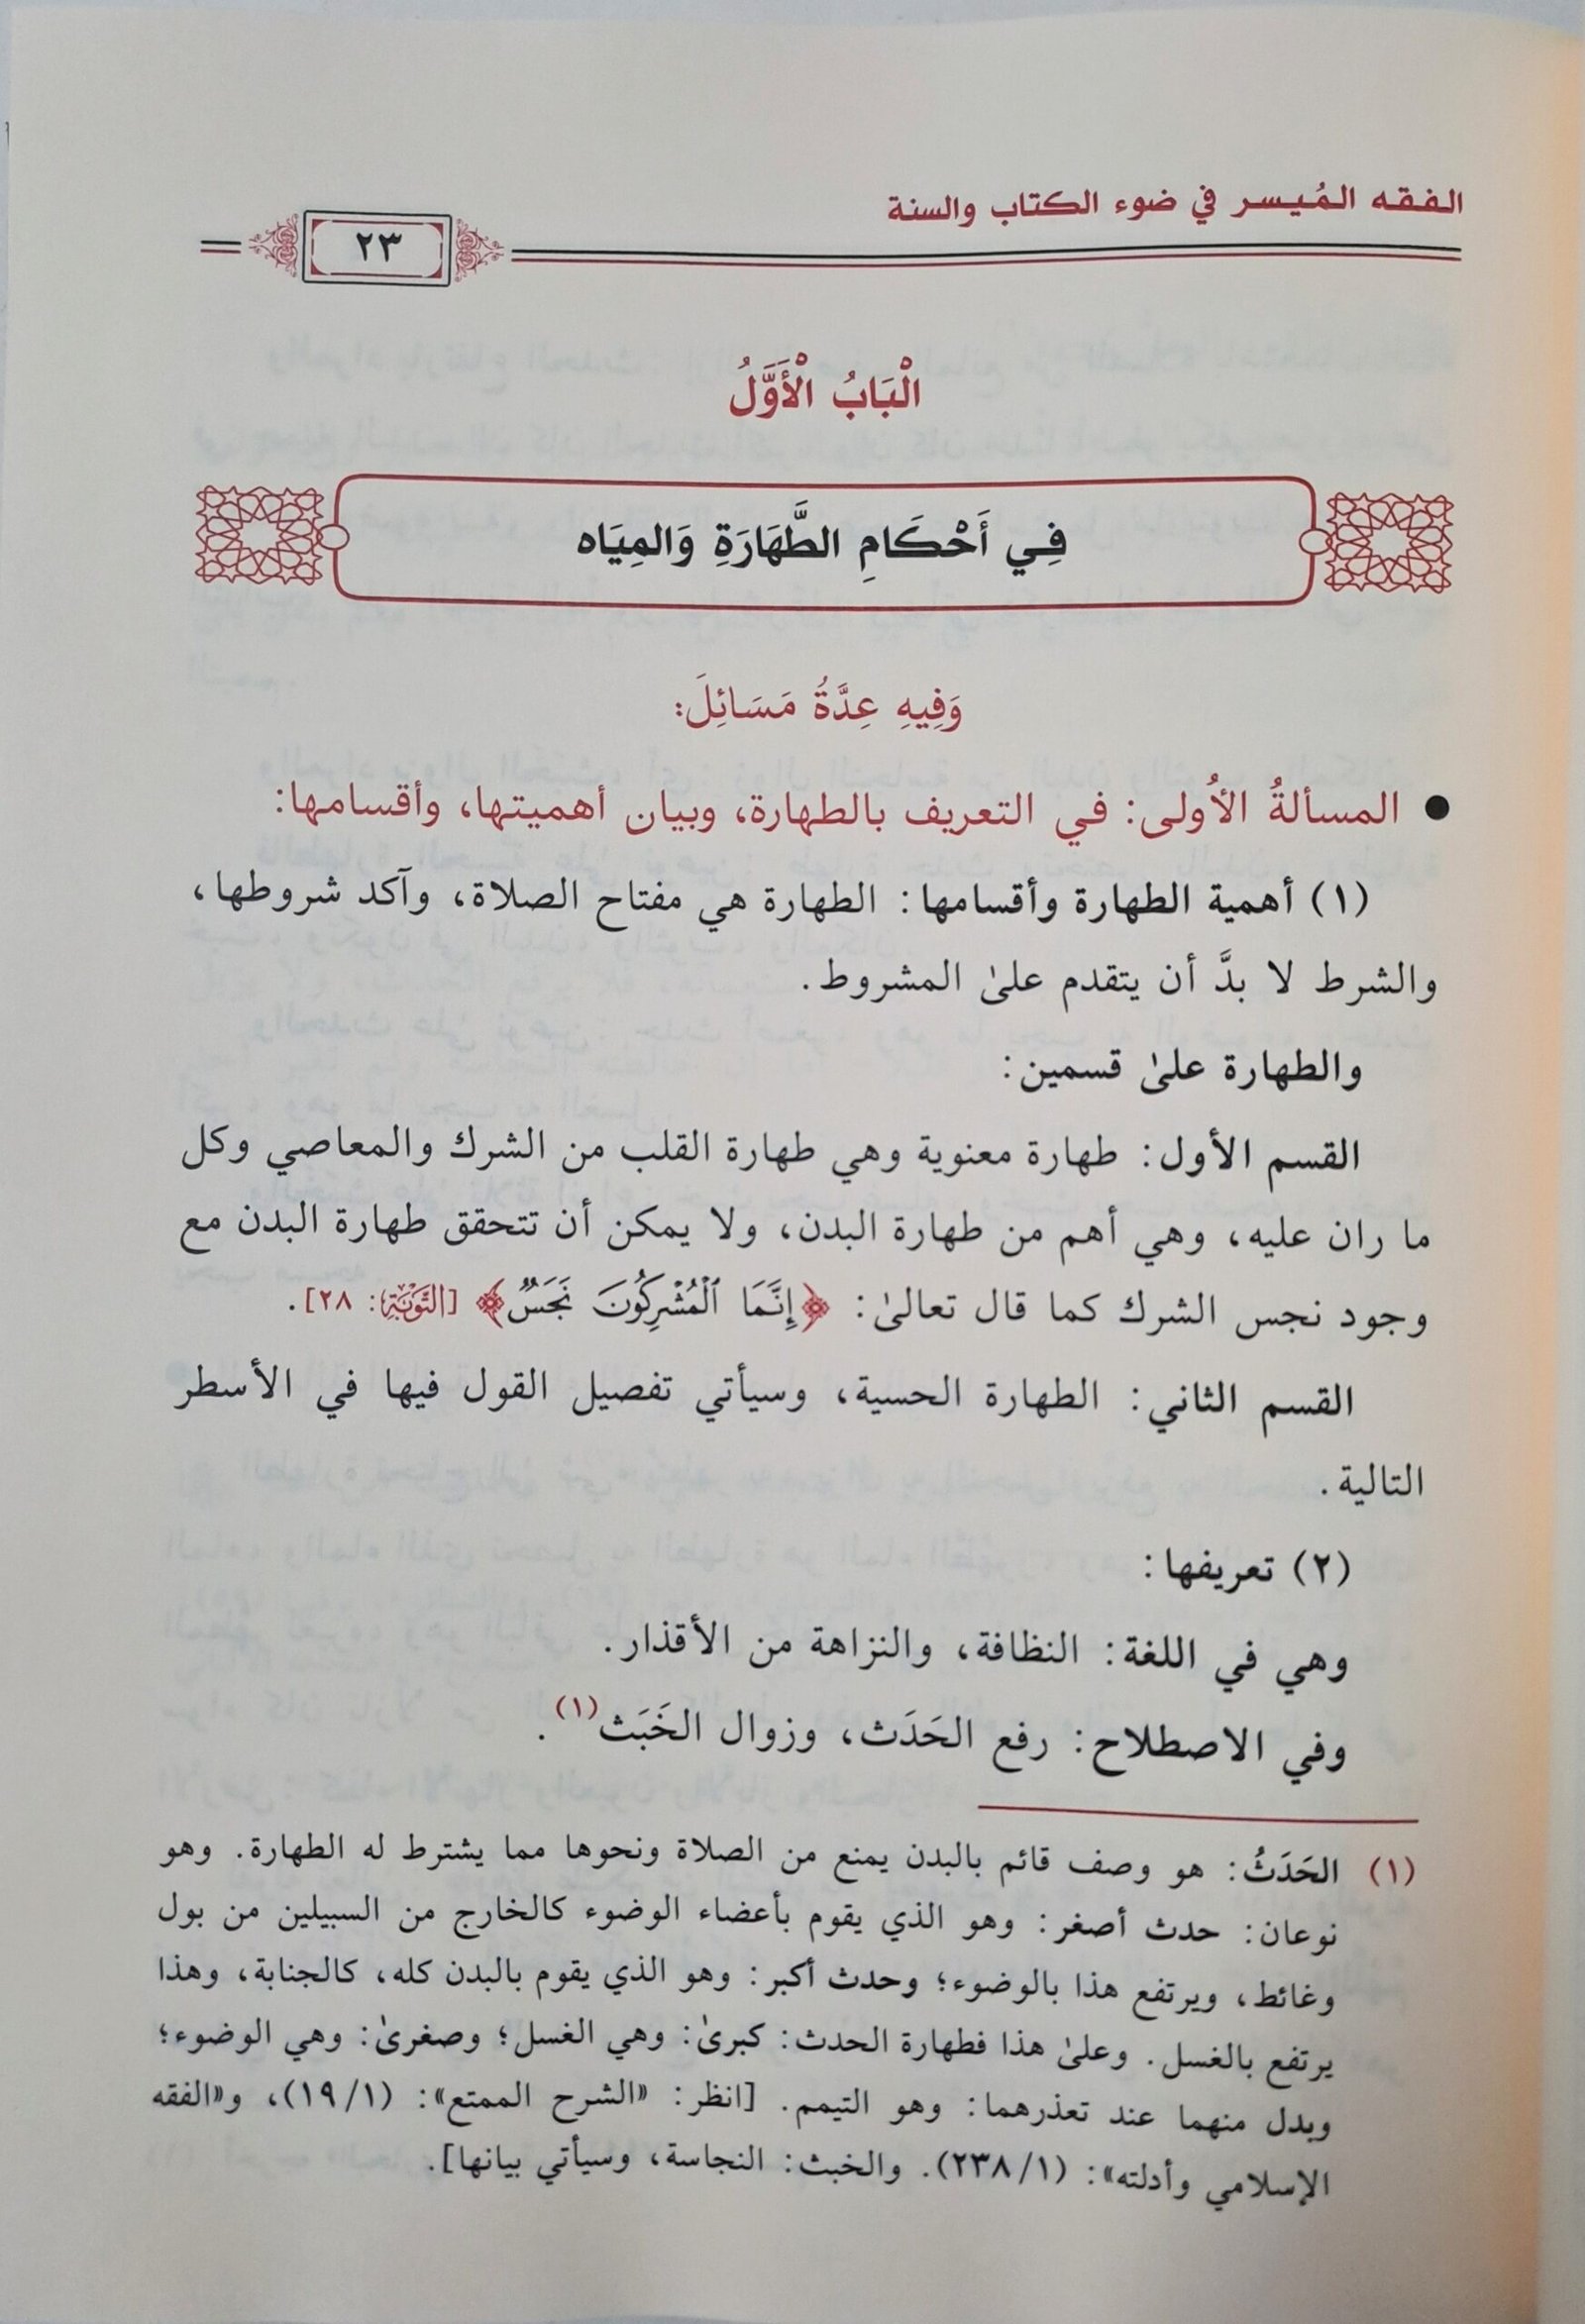 الفقه المُيسر في ضوء الكتاب والسنة
٢٣
الْبَابُ الْأَوَّلُ
فِي أَحْكَامِ الطَّهَارَةِ وَالمِيَاه
وَفِيهِ عِدَّةُ مَسَائِلَ:
● المسألةُ الأُولى: في التعريف بالطهارة، وبيان أهميتها، وأقسامها:
(١) أهمية الطهارة وأقسامها: الطهارة هي مفتاح الصلاة، وآكد شروطها،
والشرط لا بدَّ أن يتقدم علىٰ المشروط.
والطهارة علىٰ قسمين:
القسم الأول: طهارة معنوية وهي طهارة القلب من الشرك والمعاصي وكل
ما ران عليه، وهي أهم من طهارة البدن، ولا يمكن أن تتحقق طهارة البدن مع
وجود نجس الشرك كما قال تعالىٰ: ﴿إِنَّمَا ٱلْمُشْرِكُونَ نَجَسٌ﴾ [التَّوْبَة: ٢٨].
القسم الثاني: الطهارة الحسية، وسيأتي تفصيل القول فيها في الأسطر
التالية.
(٢) تعريفها:
وهي في اللغة: النظافة، والنزاهة من الأقذار.
وفي الاصطلاح: رفع الحَدَث، وزوال الخَبَث(١).
(١) الحَدَثُ: هو وصف قائم بالبدن يمنع من الصلاة ونحوها مما يشترط له الطهارة. وهو
نوعان: حدث أصغر: وهو الذي يقوم بأعضاء الوضوء كالخارج من السبيلين من بول
وغائط، ويرتفع هذا بالوضوء؛ وحدث أكبر: وهو الذي يقوم بالبدن كله، كالجنابة، وهذا
يرتفع بالغسل. وعلىٰ هذا فطهارة الحدث: كبرىٰ: وهي الغسل؛ وصغرىٰ: وهي الوضوء؛
وبدل منهما عند تعذرهما: وهو التيمم. [انظر: «الشرح الممتع»: (١/ ١٩)، و«الفقه
الإسلامي وأدلته»: (١/ ٢٣٨). والخبث: النجاسة، وسيأتي بيانها].